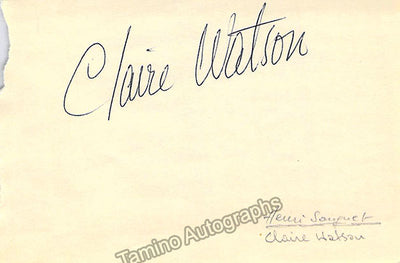 Claire Watson
Henri Sauguet
Claire Watson
Tamino Autographs